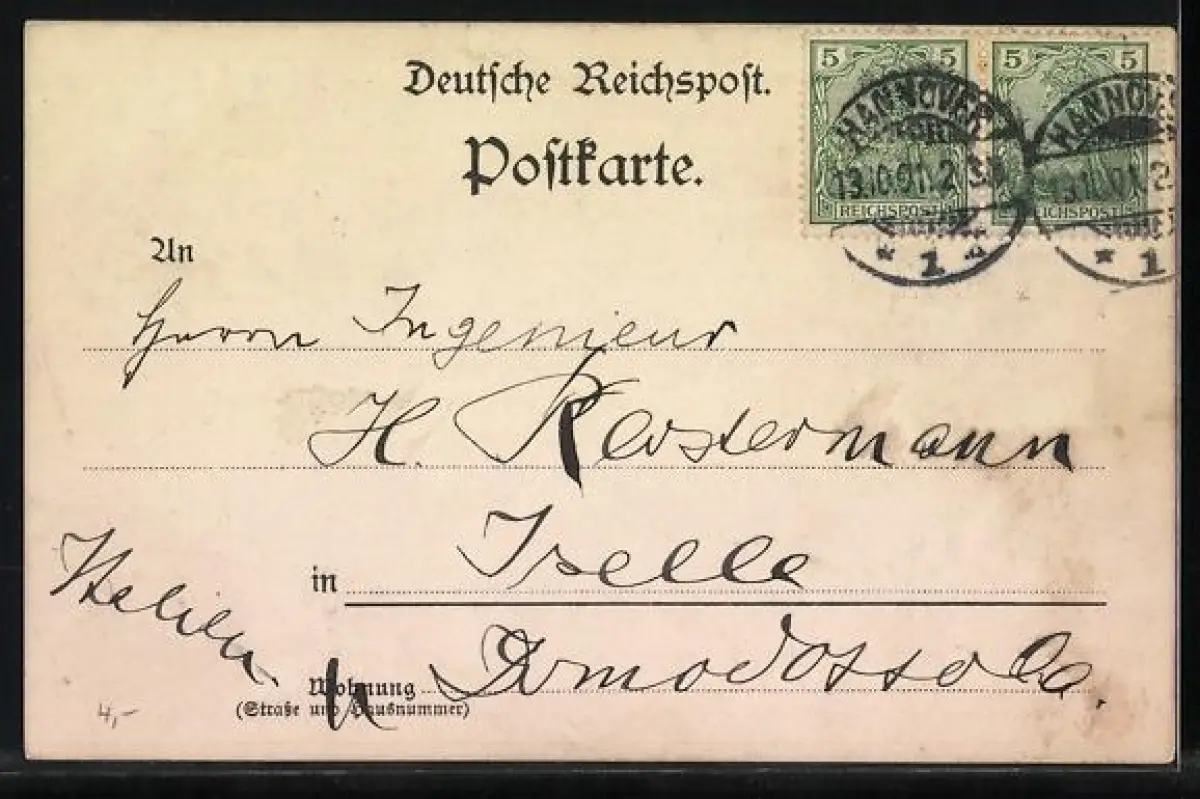 Deutsche Reichspost.
Postkarte.
5 5 5 5
REICHSPOST REICHSPOST
HANNOVER HANNOVER
13.10.01. 2
1 1
An
Herrn Ingenieur
H. Kerstermann
in Iselle
Italien
Wohnung Domodossola.
(Straße und Hausnummer)
4,-